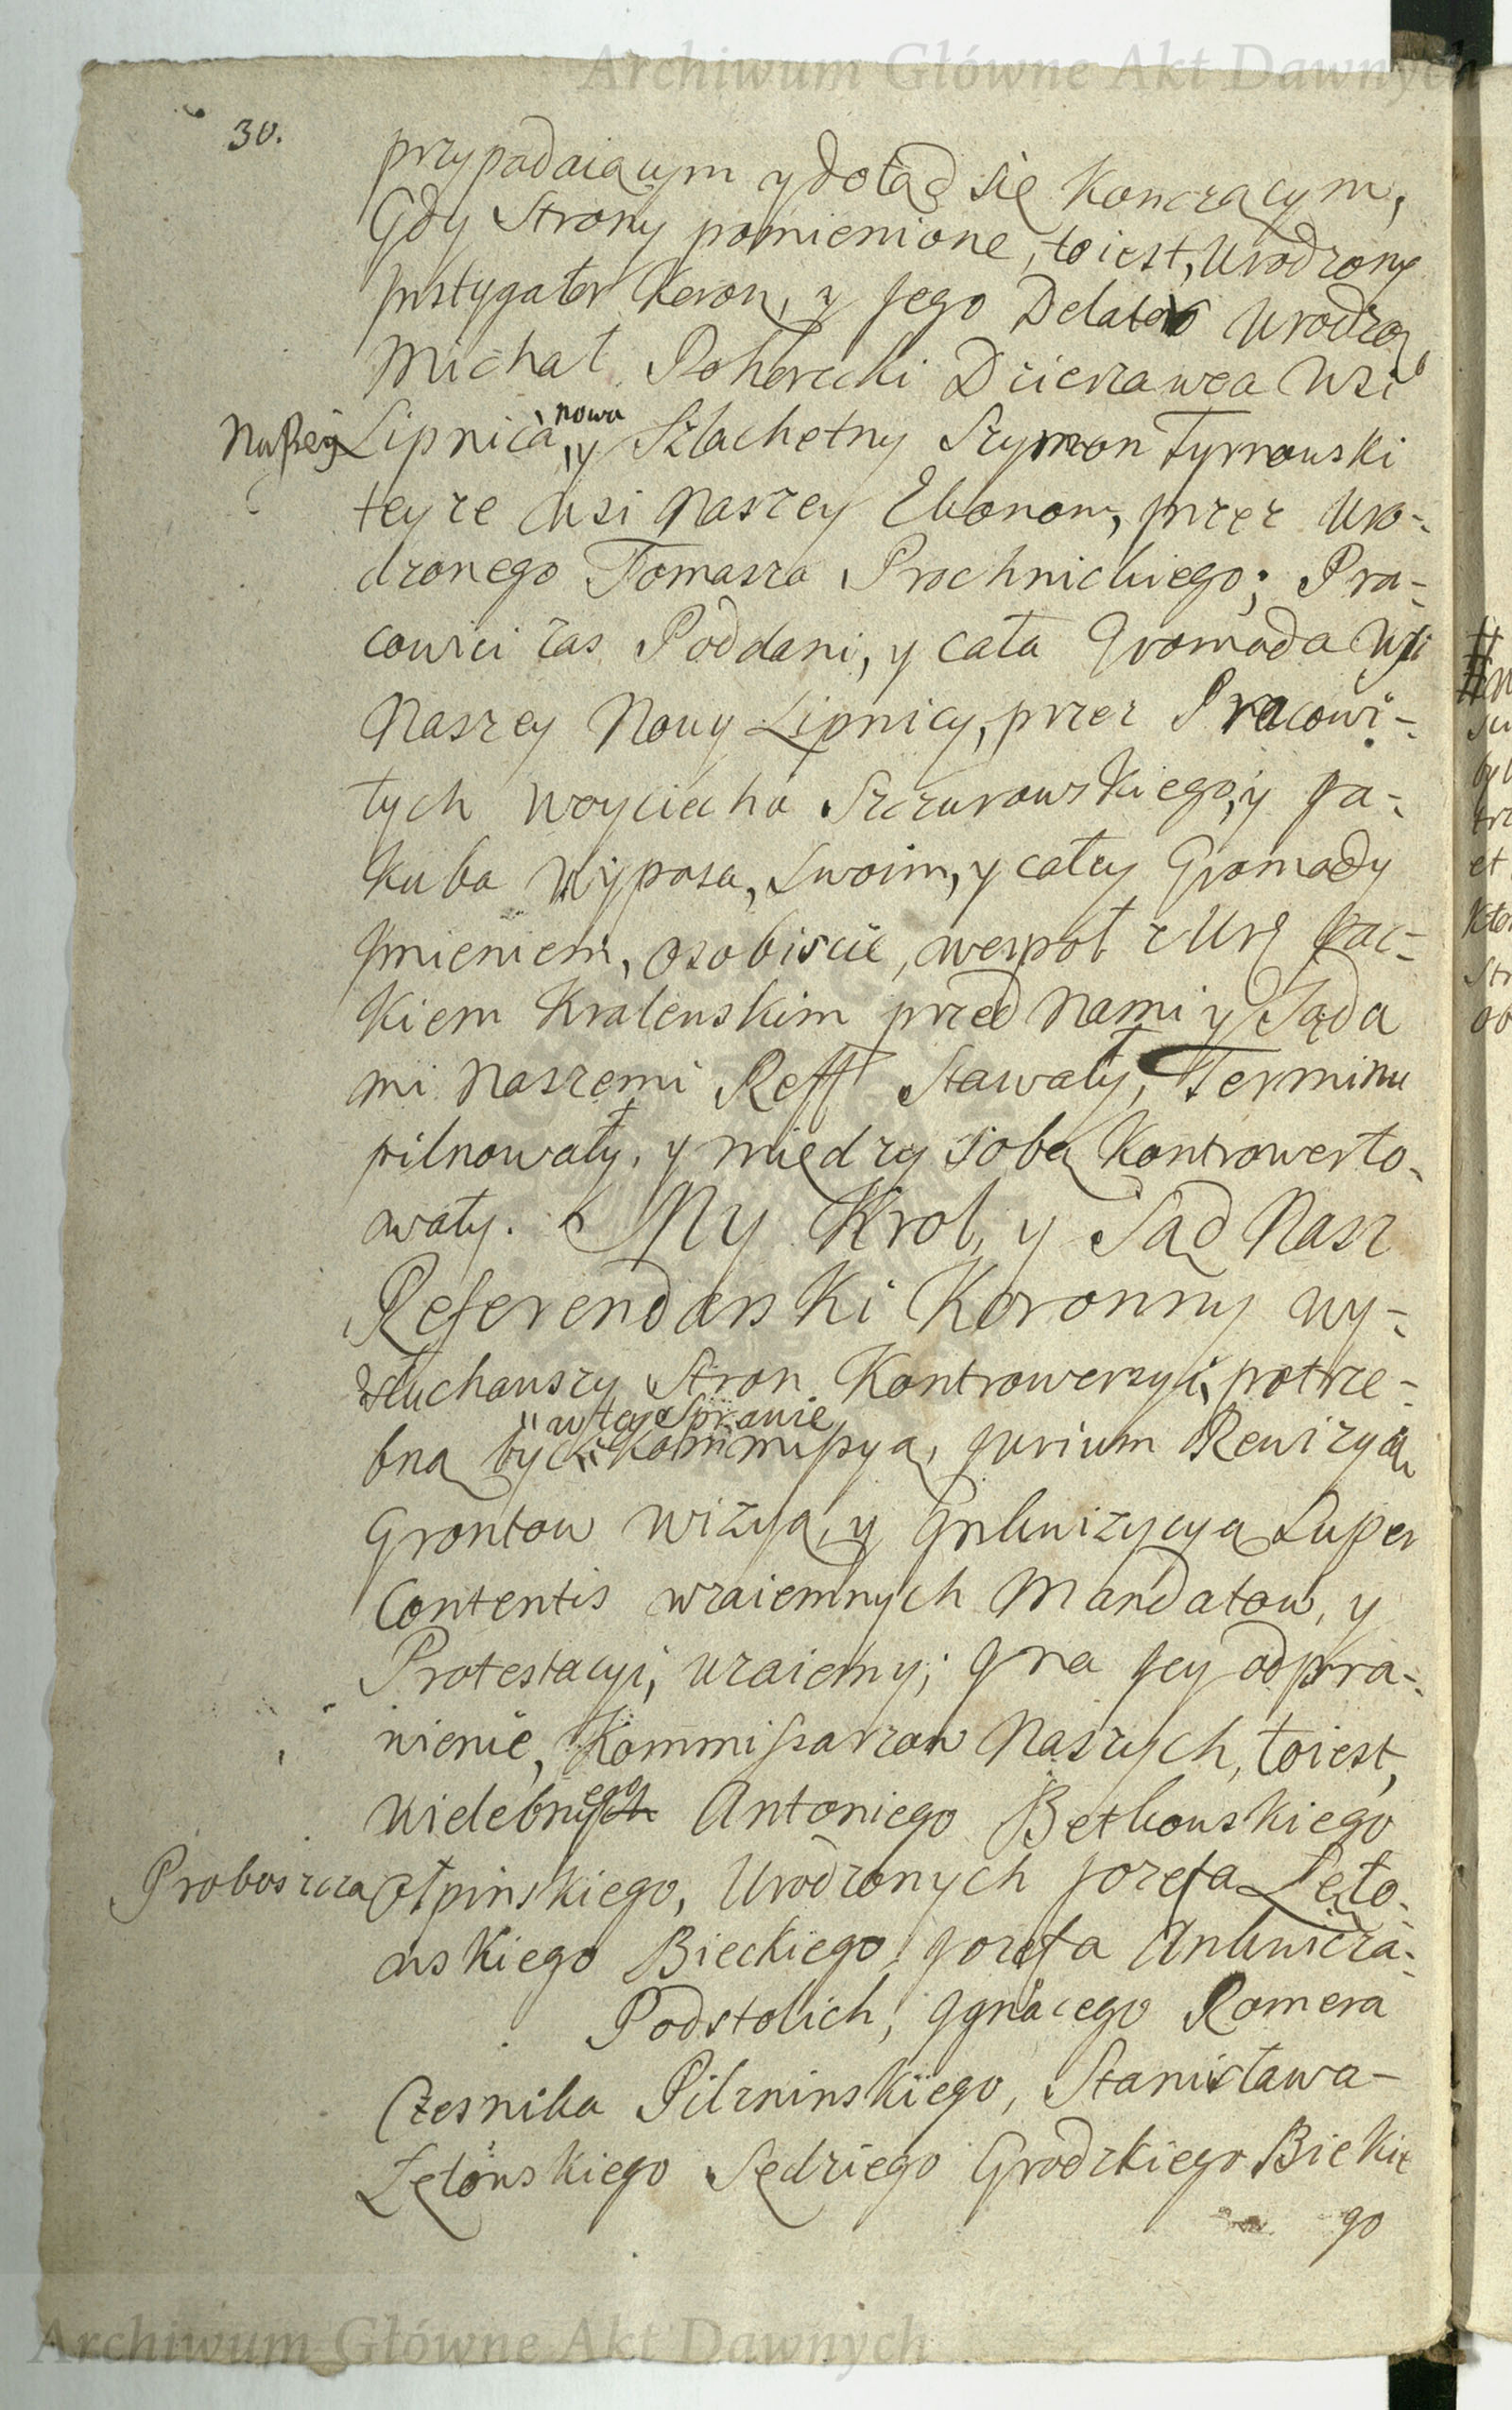 Archiwum Główne Akt Dawnych
30.
przypadaiącym y dotąd się kończącym,
Gdy Strony pomienione, toiest, Urodzony
Instygator Koron, y Jego Delator Urodzo
Michał Roherecki Dzierzawca Wsi
Naszey Lipnica nowa, y Szlachetny Szymon Tyrnauski
teyze Wsi Naszey Ekonom, przez Uro-
dzonego Tomasza Prochnickiego; Pra-
cowici zas Poddani, y cała Gromada Wsi
Naszey Nowy Lipnicy, przez Pracowi-
tych Woyciecha Szczurowskiego, y Ja-
kuba Wyposa, Swoim, y całey Gromady
Imieniem, osobiscie, wespoł z Ur Jac-
kiem Kralewskim przed Nami y Sąda
mi Naszemi Reff Stawały, Terminu
pilnowały, y między sobą Kontrowerto-
wały. My Krol, y Sąd Nasz
Referendarski Koronny wy-
słuchawszy Stron Kontrowersyi, potrze-
bną być w tey Sprawie Kommissyą, Jurium Rewizyą
Grontow wizyą, y Inkwizycyą Super
Contentis wzaiemnych Mandatow, y
Protestacyi, uznaiemy; Ina Jey odpra-
wienie, Kommissarzow Naszych, toiest,
Wielebnego Antoniego Betkowskiego
Proboszcza Ołpinskiego, Urodzonych Jozefa Łęto-
wskiego Bieckiego, Jozefa Ankwicza-
Podstolich, Ignacego Romera
Czesnika Pilzninskiego, Stanisława-
Łętowskiego Sędziego Grodzkiego Biekie
go
Archiwum Główne Akt Dawnych